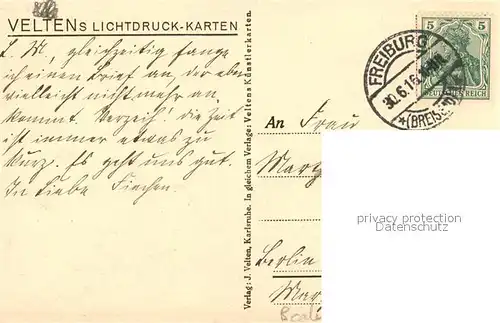 VELTENS LICHTDRUCK-KARTEN
L. M., gleichzeitig fange
ich einen Brief an, der aber
vielleicht nicht mehr an-
kommt. Verzeih! die Zeit
ist immer etwas zu
kurz. Es geht uns gut.
In Liebe Fiechen.
Verlag: J. Velten, Karlsruhe. In gleichem Verlage: Veltens Künstlerkarten.
5 5
DEUTSCHES REICH
FREIBURG
30.6.16
* (BREISGAU)
An Frau
Berlin
privacy protection
Datenschutz